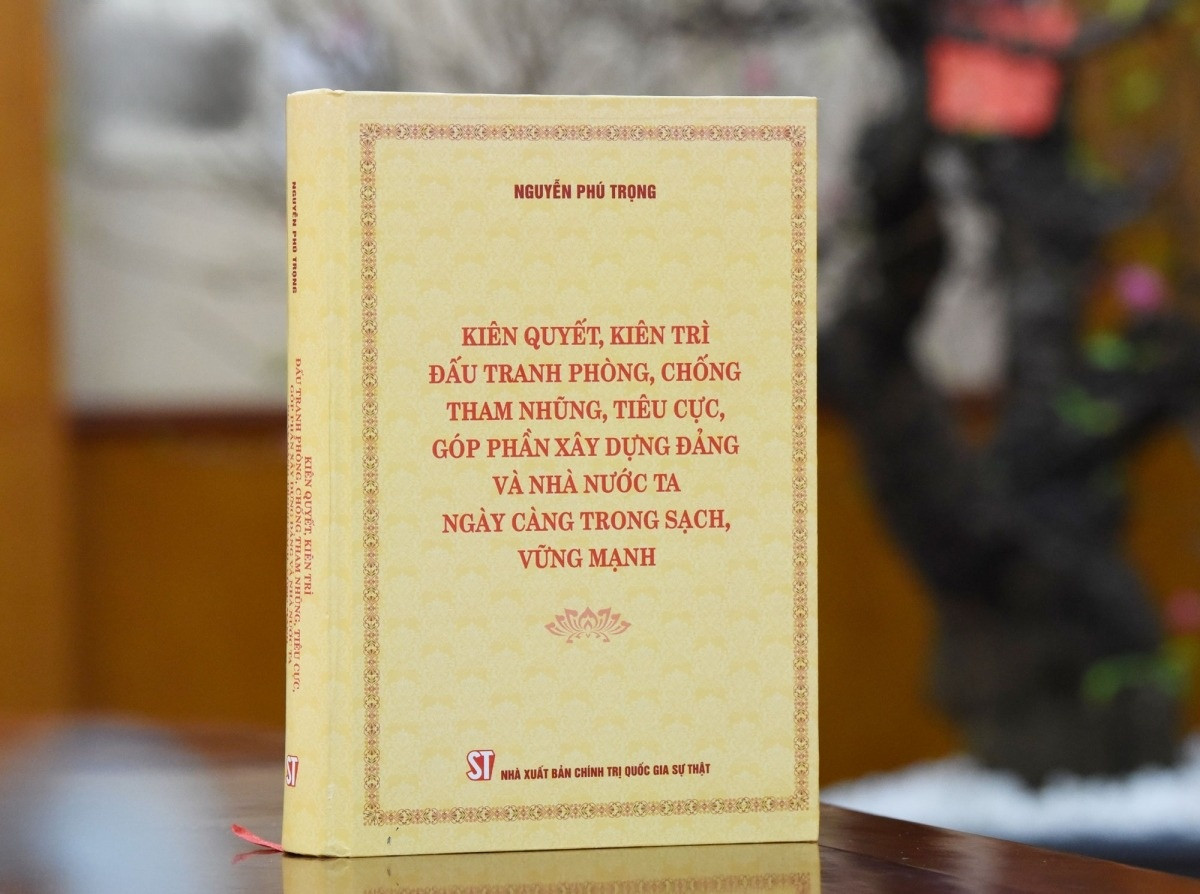 NGUYỄN PHÚ TRỌNG
KIÊN QUYẾT, KIÊN TRÌ
ĐẤU TRANH PHÒNG, CHỐNG
THAM NHŨNG, TIÊU CỰC,
GÓP PHẦN XÂY DỰNG ĐẢNG
VÀ NHÀ NƯỚC TA
NGÀY CÀNG TRONG SẠCH,
VỮNG MẠNH
ST NHÀ XUẤT BẢN CHÍNH TRỊ QUỐC GIA SỰ THẬT
NGUYỄN PHÚ TRỌNG
KIÊN QUYẾT, KIÊN TRÌ
ĐẤU TRANH PHÒNG, CHỐNG THAM NHŨNG, TIÊU CỰC,
GÓP PHẦN XÂY DỰNG ĐẢNG VÀ NHÀ NƯỚC TA
ST